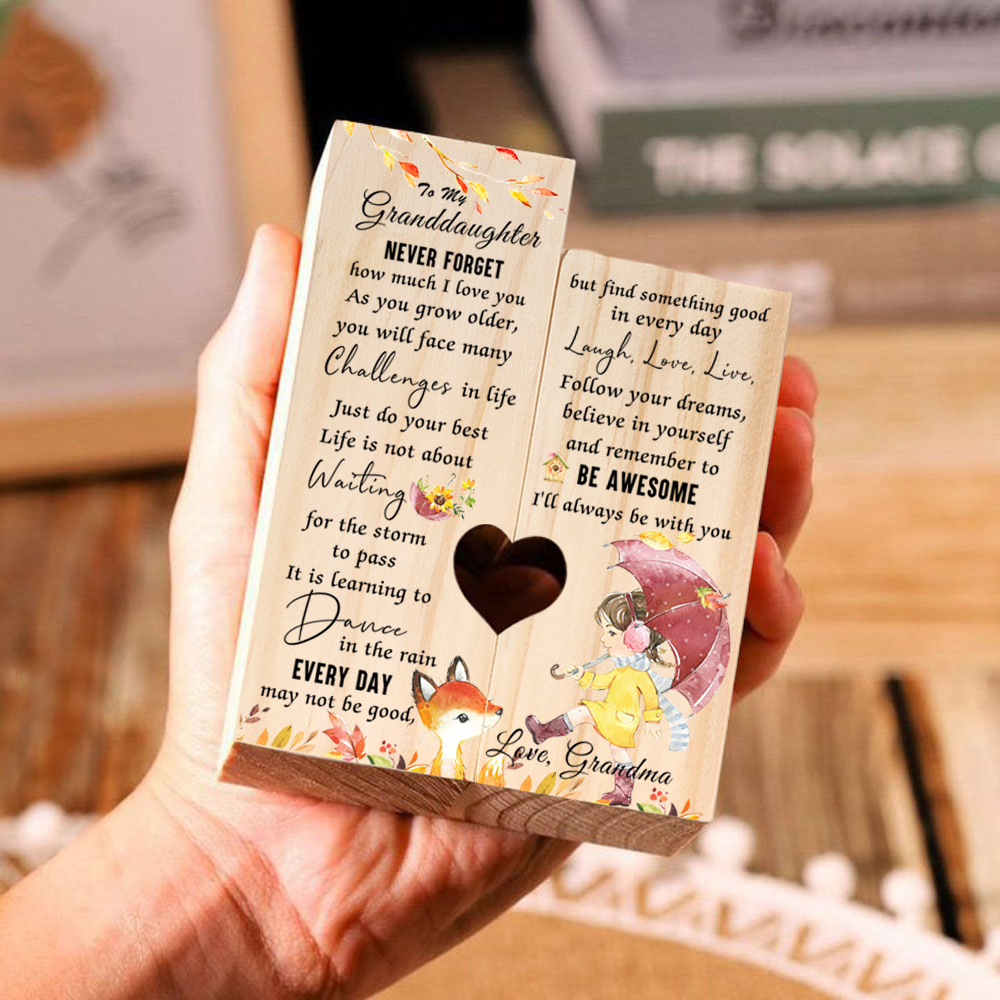 To My
Granddaughter
NEVER FORGET
how much I love you
As you grow older,
you will face many
Challenges in life
Just do your best
Life is not about
Waiting
for the storm
to pass
It is learning to
Dance
in the rain
EVERY DAY
may not be good,
but find something good
in every day
Laugh, Love, Live,
Follow your dreams,
believe in yourself
and remember to
BE AWESOME
I'll always be with you
Love, Grandma
THE SOLACE